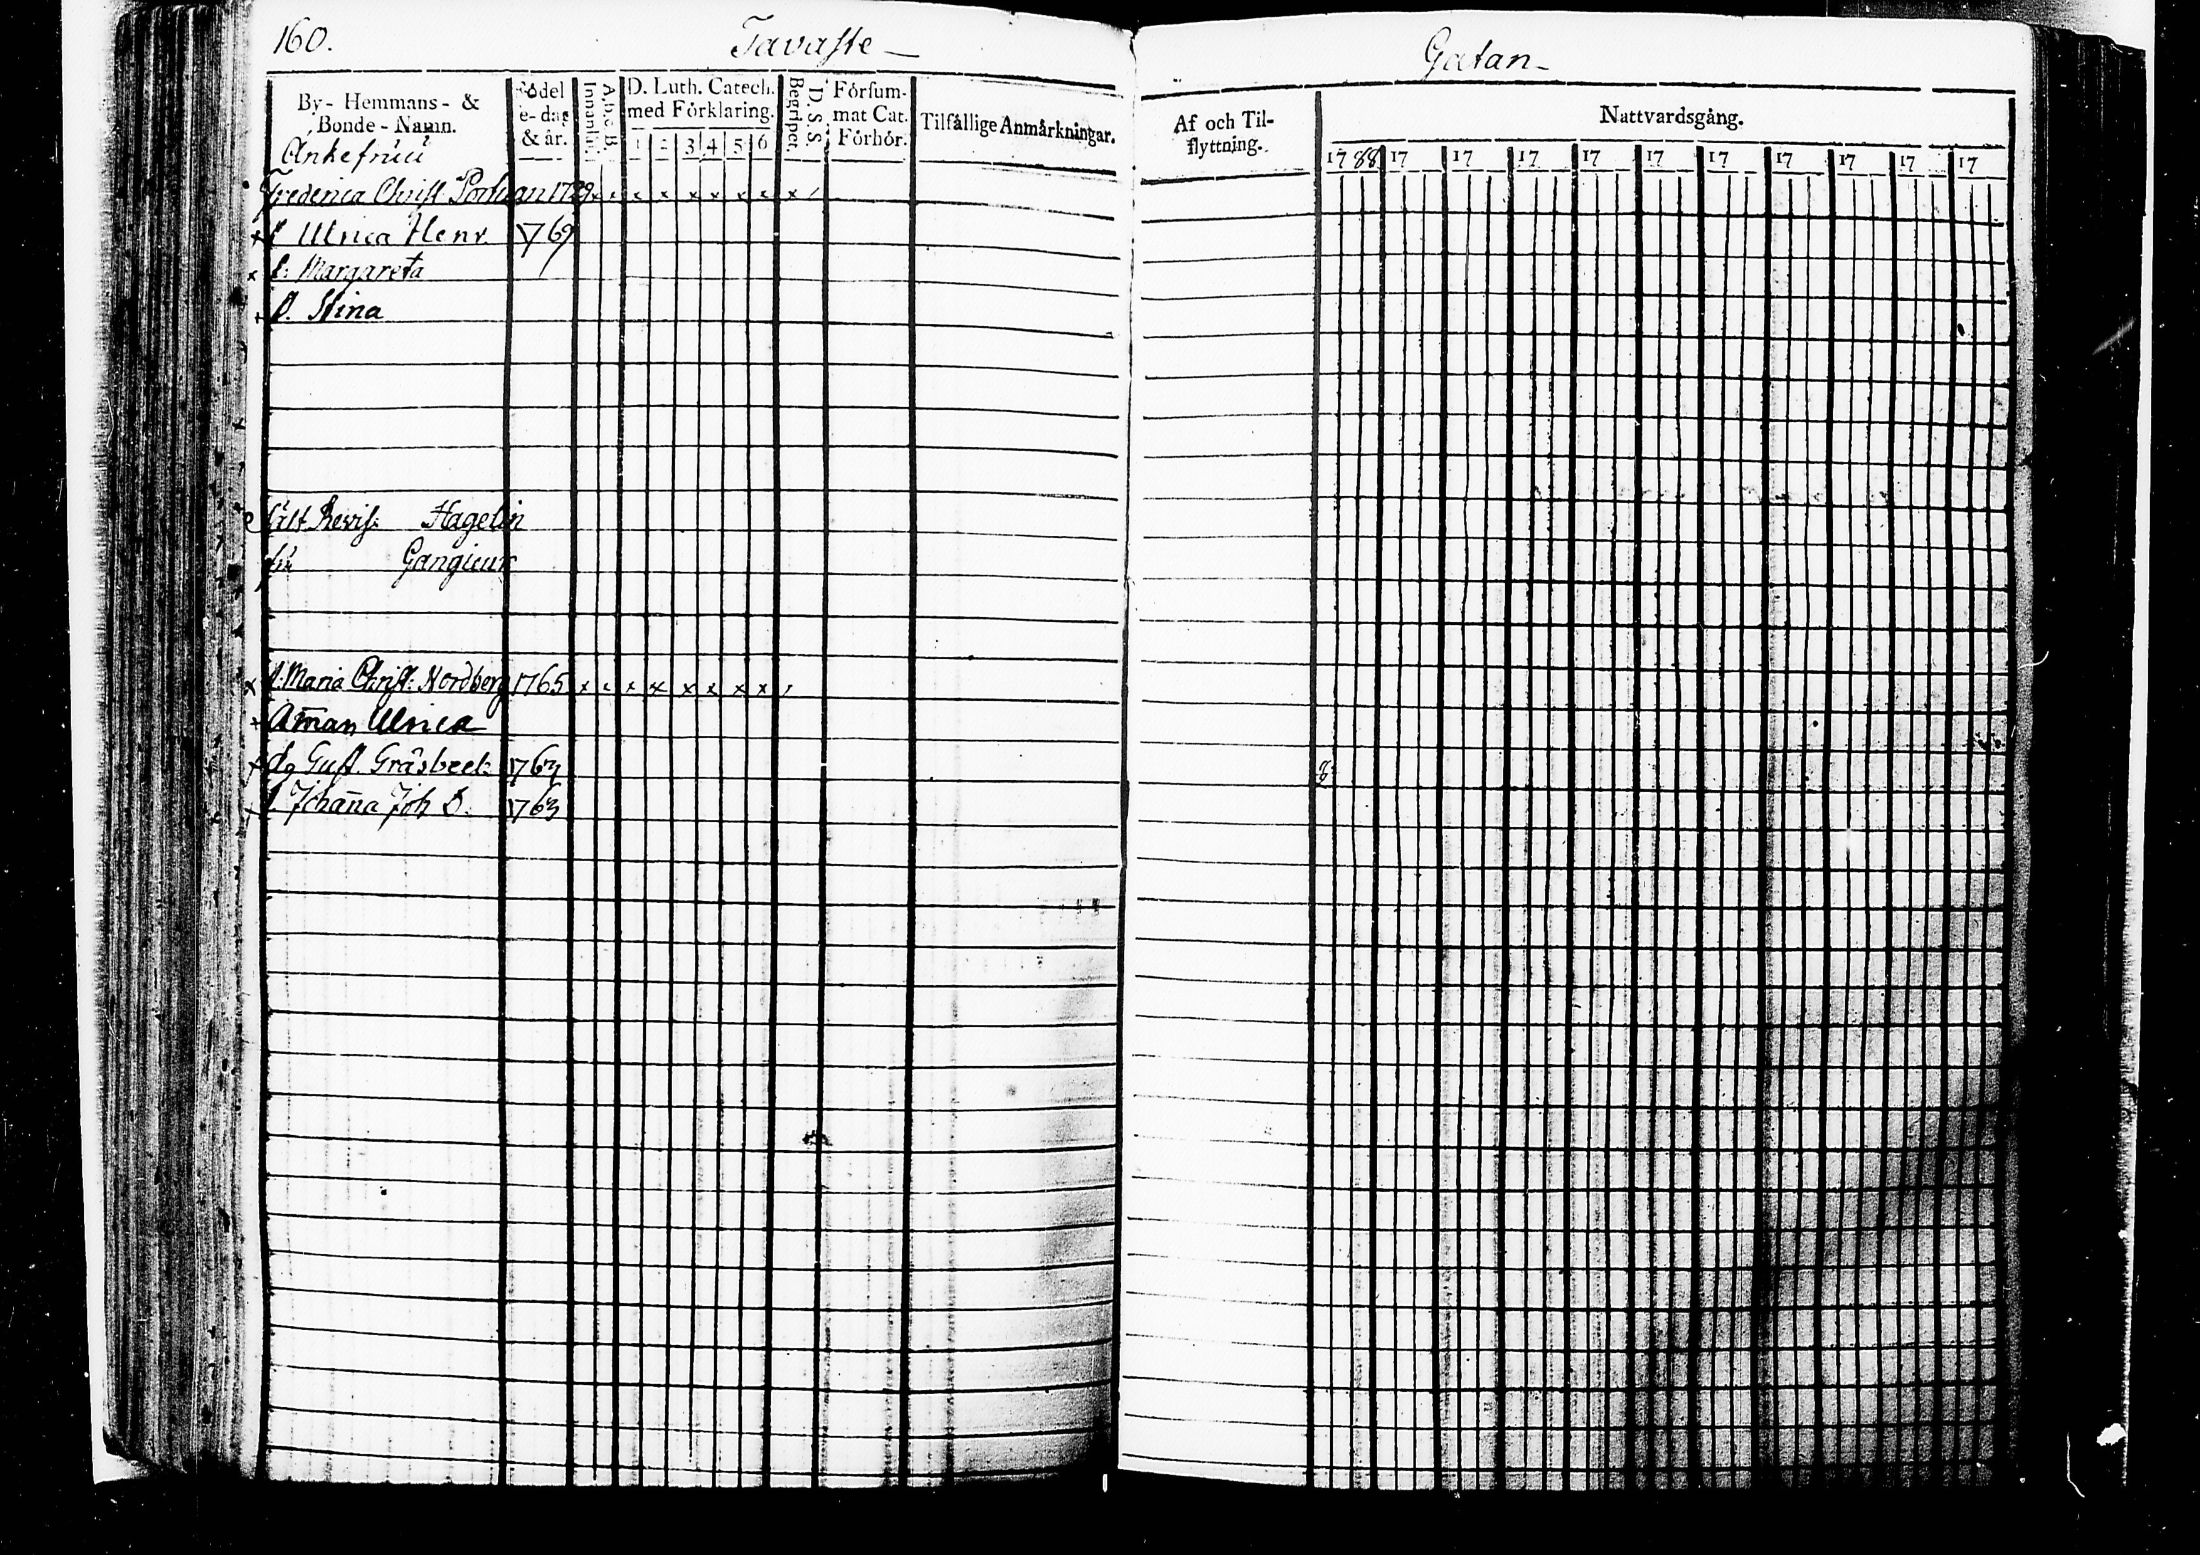 160. Tavaste - Gatan -
By- Hemmans- & Bonde-Namn. Födelse-dag & år. A.b.c.B. Innanläs. D. Luth. Catech. med Förklaring. 1 2 3 4 5 6 D. S. S. Begriper. Försummat Cat. Förhör. Tilfällige Anmärkningar. Af och Tilflyttning. Nattvardsgång.
1788 17 17 17 17 17 17 17 17 17 17
Änkefruu
Frederica Christ. Porhan x x x x x x x x
+ Ulrica Henr. 1769
x Margareta
+ Stina
Hagelin
Gangieur
x Maria Christ: Nordberg 1765 x x x x x x x x
+ Aman Ulrica
+ Gust. Gråsbeck 1763
+ Johana Joh D. 1763